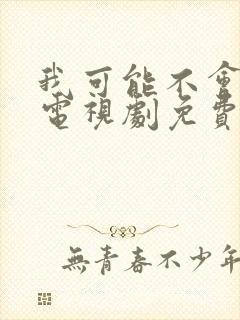 我可能不會
電視劇免費
無青春不少年